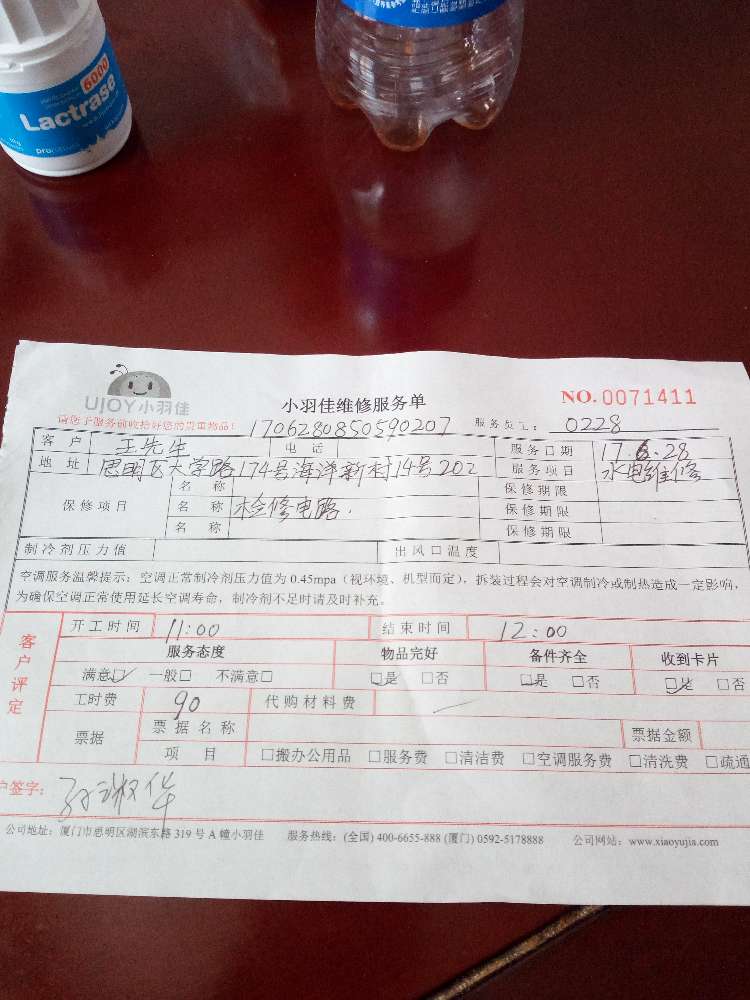 6000
Lactrase
pro
UJOY小羽佳
小羽佳维修服务单
NO. 0071411
请您于服务前收拾好您的贵重物品！
170628085059020​7
服务员工： 0228
客户 王先生 电话 服务日期 17.6.28
地址 思明区大学路174号海洋新村14号202 服务项目 水电维修
保修项目 名称 保修期限
名称 检修电路. 保修期限
名称 保修期限
制冷剂压力值 出风口温度
空调服务温馨提示：空调正常制冷剂压力值为 0.45mpa（视环境、机型而定），拆装过程会对空调制冷或制热造成一定影响，
为确保空调正常使用延长空调寿命，制冷剂不足时请及时补充。
客户评定
开工时间 11:00 结束时间 12:00
服务态度 物品完好 备件齐全 收到卡片
满意☑ 一般□ 不满意□ ☑是 □否 ☑是 □否 ☑是 □否
工时费 90 代购材料费 —
票据 票据名称 票据金额
项目 □搬办公用品 □服务费 □清洁费 □空调服务费 □清洗费 □疏通
户签字：
公司地址：厦门市思明区湖滨东路 319 号 A 幢小羽佳 服务热线：(全国) 400-6655-888 (厦门) 0592-5178888 公司网站：www.xiaoyujia.com